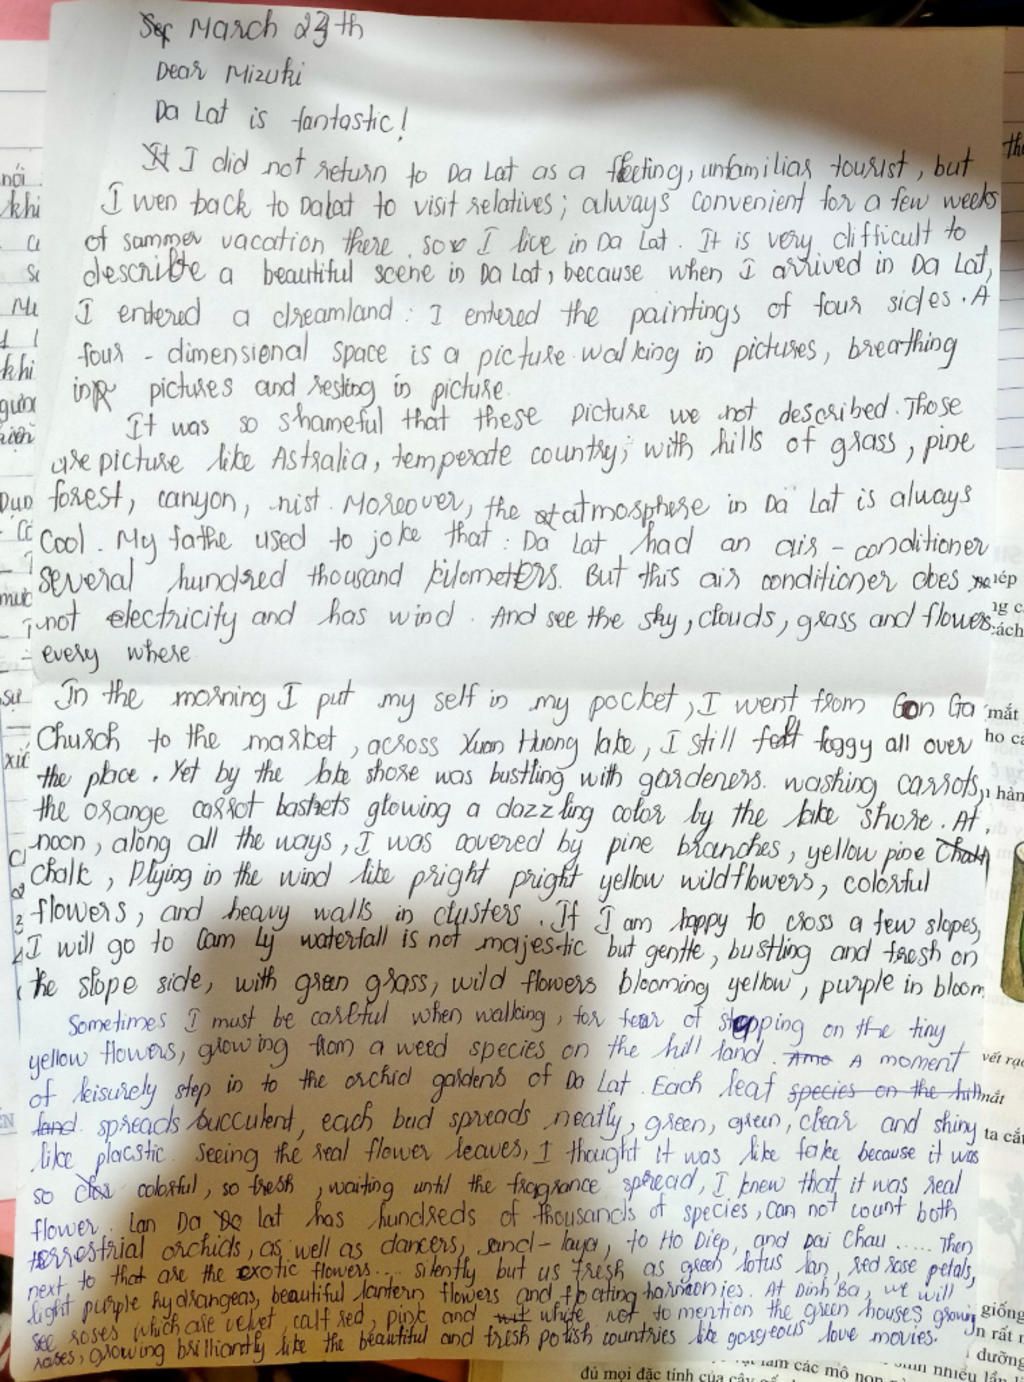 March 23th
Dear Mizuki
Da Lat is fantastic!
I did not return to Da Lat as a fleeting, unfamilias tourist, but
I wen back to Dalat to visit relatives; always convenient for a few weeks
of sammer vacation there. so I live in Da Lat. It is very difficult to
describe a beautiful scene in Da Lat, because when I arrived in Da Lat,
I entered a dreamland: I entered the paintings of four sides. A
four - dimensional space is a picture walking in pictures, breathing
in pictures and resting in picture.
It was so shameful that these picture we not described. Those
are picture like Astralia, temperate country; with hills of grass, pine
forest, canyon, mist. Moreover, the atmosphere in Da Lat is always
Cool. My fathe used to joke that: Da Lat had an air - conditioner
several hundred thousand kilometers. But this air conditioner does
not electricity and has wind. And see the sky, clouds, grass and flowers
every where
In the morning I put my self in my pocket, I went from Con Ga
Church to the market, across Xuan Huong lake, I still felt foggy all over
the place. Yet by the lake shore was bustling with gardeners. washing carrots,
the orange carrot baskets glowing a dazzling color by the lake shore. At
noon, along all the ways, I was covered by pine branches, yellow pine
chalk, Plying in the wind like pright pright yellow wildflowers, colorful
flowers, and heavy walls in clusters. If I am happy to cross a few slopes,
I will go to Cam Ly waterfall is not majestic but gentle, bustling and fresh on
the slope side, with green grass, wild flowers blooming yellow, purple in bloom
Sometimes I must be careful when walking, for fear of stepping on the tiny
yellow flowers, growing from a weed species on the hill land. A moment
of leisurely step in to the orchid gardens of Da Lat. Each leaf
spreads succulent, each bud spreads neatly, green, green, clear and shiny
like placstic. Seeing the real flower leaves, I thought it was like fake because it was
so colorful, so fresh, waiting until the fragrance spread, I knew that it was real
flower. Lan Da lat has hundreds of thousands of species, can not count both
terrestrial orchids, as well as dancers, to Ho Diep, and Dai Chau ..... Then
next to that are the exotic flowers.... silently but us fresh as green lotus lan, red rose petals,
light purple hydrangeas, beautiful lantern flowers and floating harmonies. At Dinh Ba, we will
see roses which are velvet, calf red, pink and white not to mention the green houses growing
roses, growing brilliantly like the beautiful and fresh potish countries like gorgeous love movies.